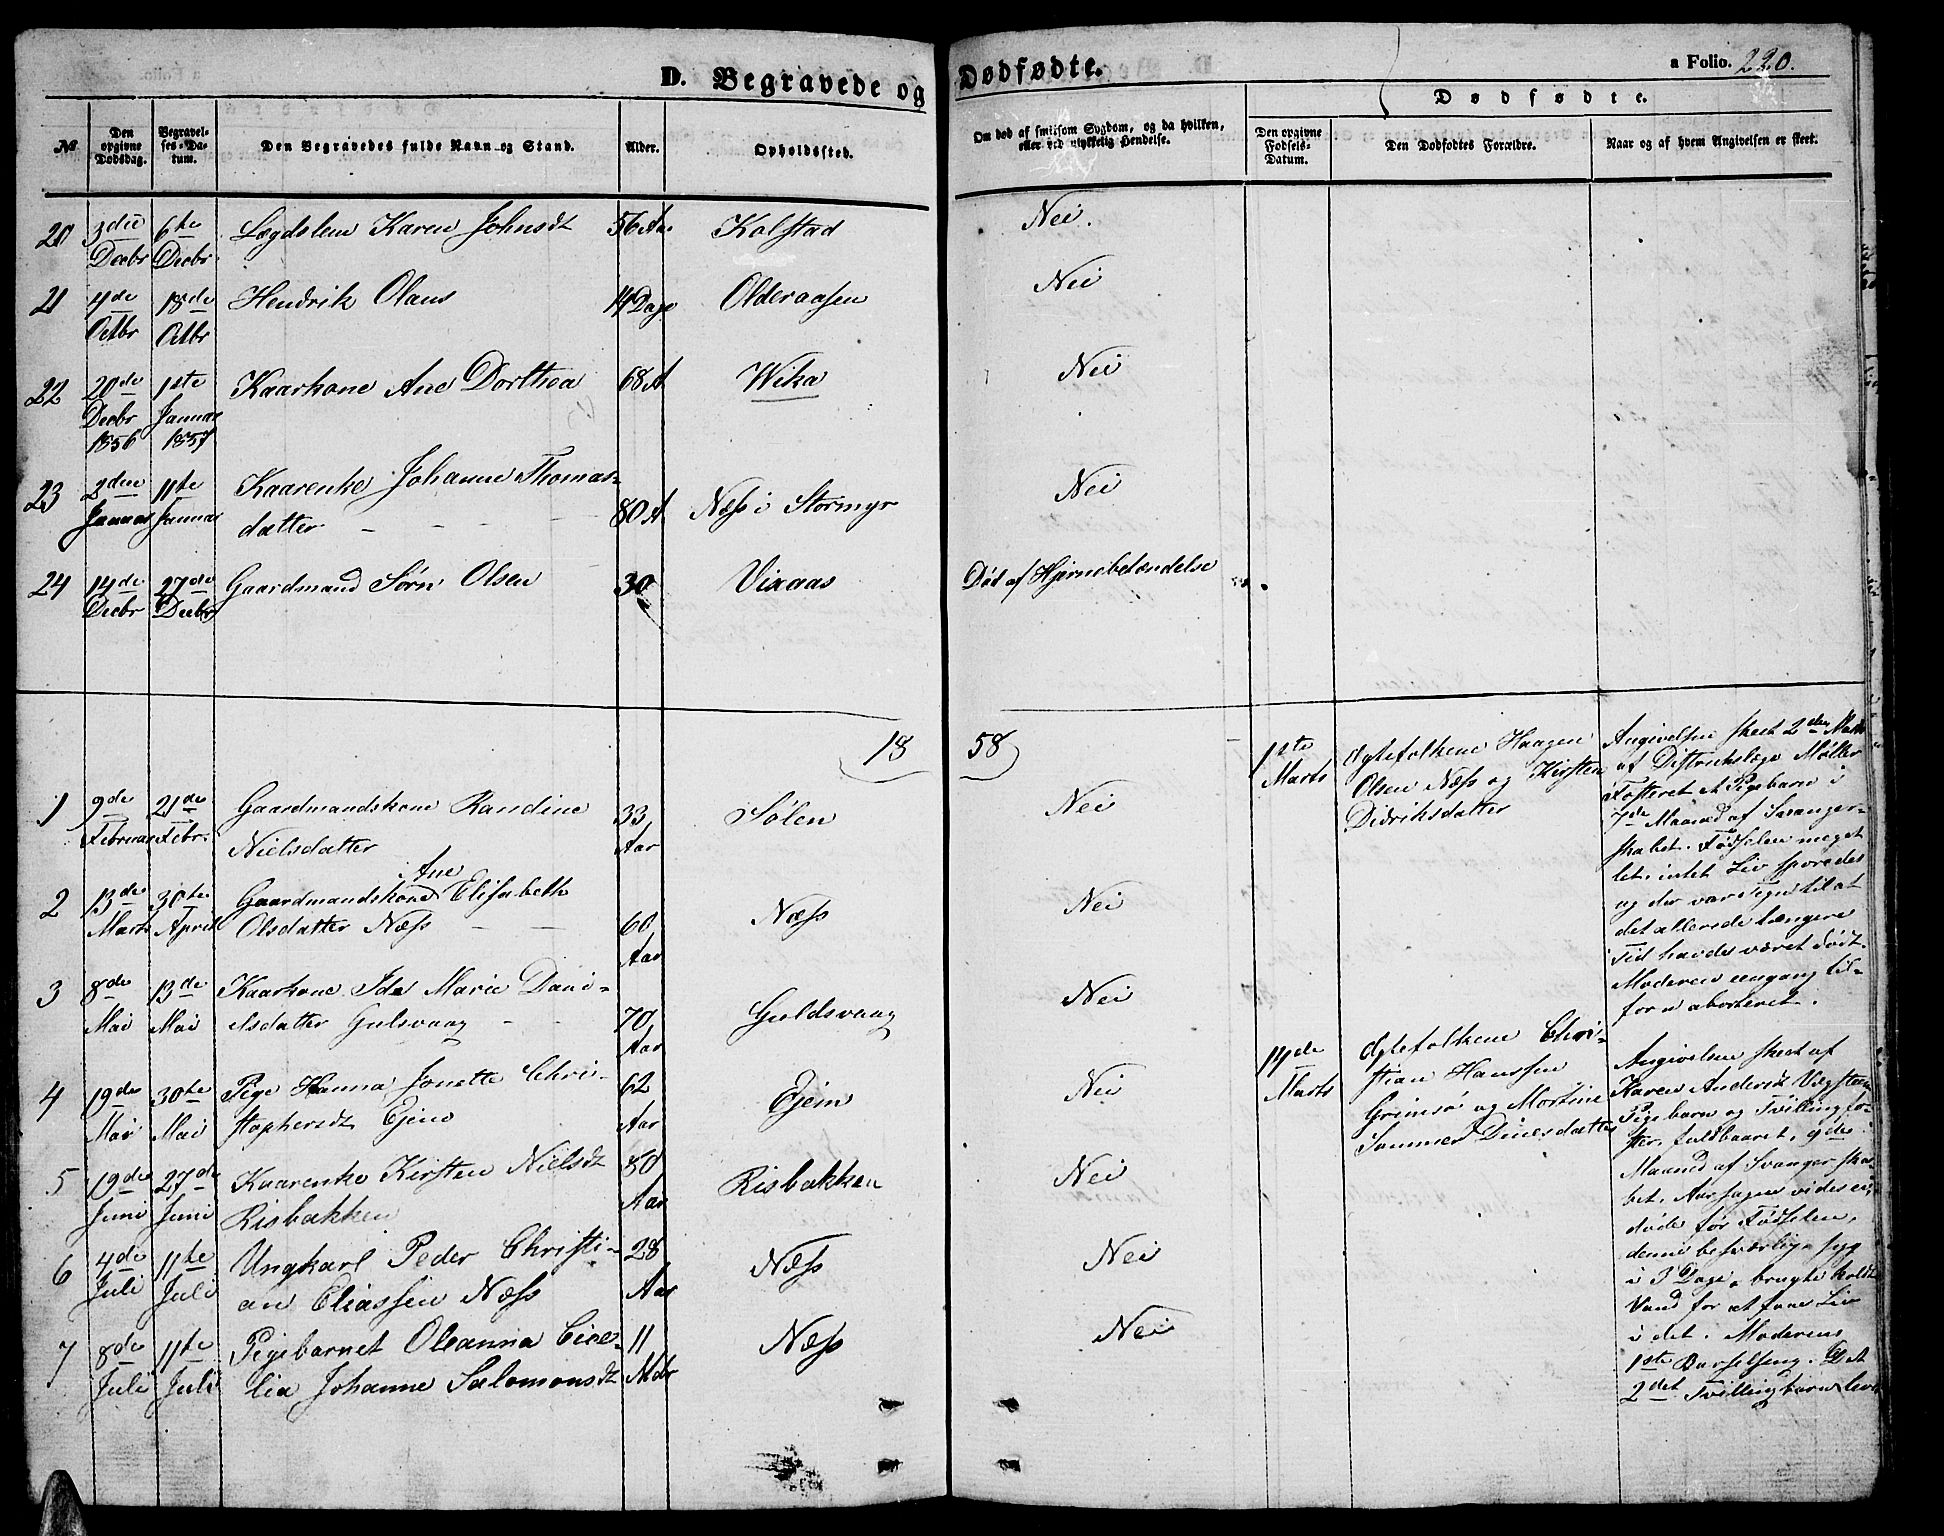 D. Begravede og Dødfødte.
a Folio. 220.
Dødfødte.
№
Den opgivne Dødsdag.
Begravelses-Datum.
Den Begravedes fulde Navn og Stand.
Alder.
Opholdssted.
Om død af smitsom Sygdom, og da hvilken, eller ved ulykkelig Hendelse.
Den opgivne Fødsels-Datum.
Den Dødfødtes Forældre.
Naar og af hvem Angivelsen er skeet.
20 3die Decbr 6te Decbr Lægdslem Karen Johnsdt 56 Aar Kolstad Nei.
21 4de Octbr 18de Octbr Hendrik Olaus 14 Dage Olderaasen Nei
22 20de Decbr 1856 1ste Januar 1857 Kaarkone Ane Dorthea 68 A Wika Nei
23 2den Januar 11te Januar Kaarenke Johanne Thomas-
datter 80 A Næss i Stormyr Nei
24 14de Decbr 27de Decbr Gaardmand Sørn Olsen 30 Vixaas Død af Hjernebetændelse
18 58
1 9de Februar 21de Febr. Gaardmandskone Randine
Nielsdatter 33 Aar Sølen Nei
2 13de Marts 30te April Gaardmandskone Ane Elisabeth
Olsdatter Næss 60 Aar Næss Nei
3 8de Mai 13de Mai Kaarkone Ide Marie Dani-
elsdatter Gulsvaag 70 Aar Guldsvaag Nei
4 19de Mai 30te Mai Pige Hanna Jonette Chri-
stophersdt Ejem 62 Aar Ejem Nei
5 19de Juni 27de Juni Kaarenke Kirsten Nielsdt
Risbakken 80 Aar Risbakken Nei
6 4de Juli 11te Juli Ungkarl Peder Christi-
an Eliassen Næss 28 Aar Næss Nei
7 8de Juli 11te Juli Pigebarnet Oleanna Cice-
lia Johanne Salomonsdt 11 Mdr Næss Nei
1ste Marts
Ægtefolkene Haagen
Olsen Næss og Kirsten
Didriksdatter
Angivelsen skeet 2den Marts
af Distriktslæge Møller
Fosteret et Pigebarn i
7de Maaned af Svanger-
skabet. Fødselen meget
let, intet Liv sporedes
og der var Tegn til at
det allerede længere
Tid havde været dødt.
Moderen eengang til-
forn aborteret.
14de Marts
Ægtefolkene Chri-
stian Hanssen
Grimsø og Mortine
Sammer Dinesdatter
Angivelsen skeet af
Karen Andersdt Vægsteen
Pigebarn og Tvillingfo-
ster, fuldbaaret, 9de
Maaned af Svangerska-
bet. Aarsagen vides ei,
døde før Fødselen,
denne besværlig, syg
i 3 Dage, brugte koldt
Vand for at faae Liv
i det. Moderens
1ste Barselseng. Det
2det Tvillingbarn lever